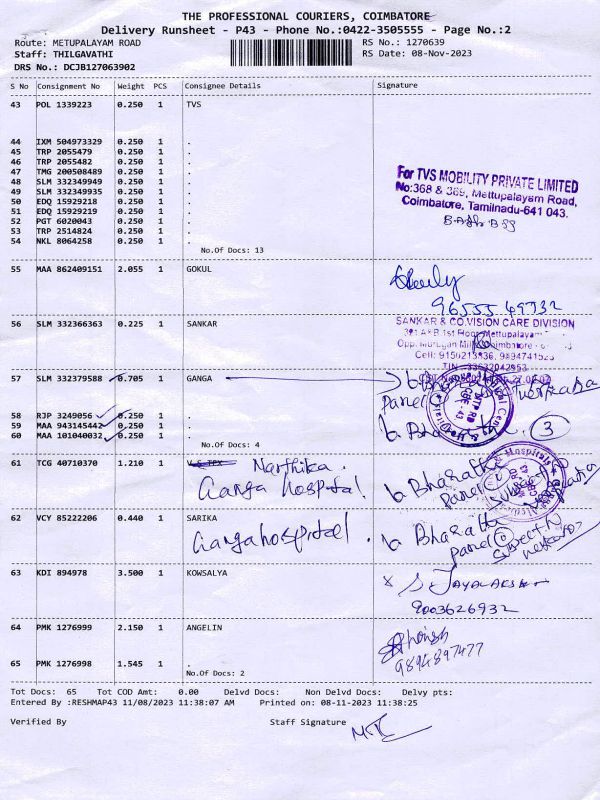 THE PROFESSIONAL COURIERS, COIMBATORE
Delivery Runsheet - P43 - Phone No.:0422-3505555 - Page No.:2
Route: METUPALAYAM ROAD RS No.: 1270639
Staff: THILGAVATHI RS Date: 08-Nov-2023
DRS No.: DCJB127063902
S No Consignment No Weight PCS Consignee Details Signature
43 POL 1339223 0.250 1 TVS
44 IXM 504973329 0.250 1 .
45 TRP 2055479 0.250 1 .
46 TRP 2055482 0.250 1 .
47 TMG 200508489 0.250 1 .
48 SLM 332349949 0.250 1 .
49 SLM 332349935 0.250 1 .
50 EDQ 15929218 0.250 1 .
51 EDQ 15929219 0.250 1 .
52 PGT 6020043 0.250 1 .
53 TRP 2514824 0.250 1 .
54 NKL 8064258 0.250 1 .
No.Of Docs: 13
For TVS MOBILITY PRIVATE LIMITED
No:368 & 369, Mettupalayam Road,
Coimbatore, Tamilnadu-641 043.
55 MAA 862409151 2.055 1 GOKUL
96555 49732
56 SLM 332366363 0.225 1 SANKAR
SANKAR & CO.VISION CARE DIVISION
1st Floor Mettupalayam
Cell: 9150213836,
57 SLM 332379588 0.705 1 GANGA
58 RJP 3249056 0.250 1 .
59 MAA 943145442 0.250 1 .
60 MAA 101040032 0.250 1 .
No.Of Docs: 4
3
61 TCG 40710370 1.210 1 Narthika.
Ganga hospital b Bharatha
62 VCY 85222206 0.440 1 SARIKA
Ganga hospital. b Bharatha
63 KDI 894978 3.500 1 KOWSALYA
9003626932
64 PMK 1276999 2.150 1 ANGELIN
9894897477
65 PMK 1276998 1.545 1 .
No.Of Docs: 2
Tot Docs: 65 Tot COD Amt: 0.00 Delvd Docs: Non Delvd Docs: Delvy pts:
Entered By :RESHMAP43 11/08/2023 11:38:07 AM Printed on: 08-11-2023 11:38:25
Verified By Staff Signature